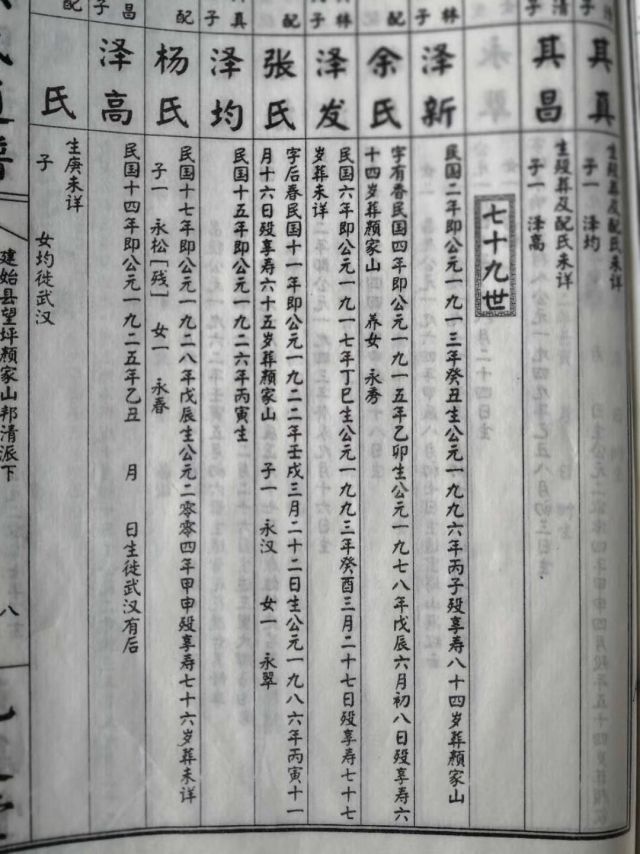 其真
生殁葬及配氏未详
子一 泽均
清子
其昌
生殁葬及配氏未详
子一 泽高
七十九世
林子
泽新
民国二年即公元一九一三年癸丑生公元一九九六年丙子殁享寿八十四岁葬颜家山
配
余氏
字有香民国四年即公元一九一五年乙卯生公元一九七八年戊辰六月初八日殁享寿六
十四岁葬颜家山 养女 永秀
林子
泽发
民国六年即公元一九一七年丁巳生公元一九九三年癸酉三月二十七日殁享寿七十七
岁葬未详
配
张氏
字后春民国十一年即公元一九二二年壬戌三月二十二日生公元一九八六年丙寅十一
月十六日殁享寿六十五岁葬颜家山 子一 永汉 女一 永翠
真子
泽均
民国十五年即公元一九二六年丙寅生
配
杨氏
民国十七年即公元一九二八年戊辰生公元二零零四年甲申殁享寿七十六岁葬未详
子一 永松[残] 女一 永春
昌子
泽高
民国十四年即公元一九二五年乙丑 月 日生徙武汉有后
配
氏
生庚未详
子 女均徙武汉
通谱
建始县望坪颜家山邦清派下
八